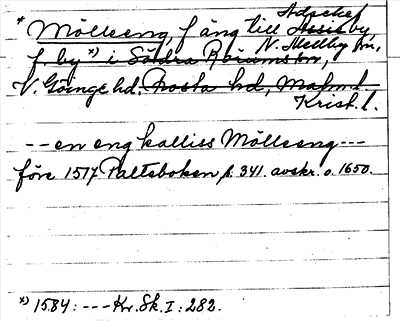 * Mölleeng, f äng till Asseby,
f by x) i Södra Rörums sn, N. Mellby sn,
V. Göinge hd. Frosta hd, Malm. l.
Krist. l.
-- en eng kalliss Mölleeng ---
före 1517 Paltseboken p. 341. avskr. o. 1650.
x) 1584: --- Kr. Sk. I: 282.